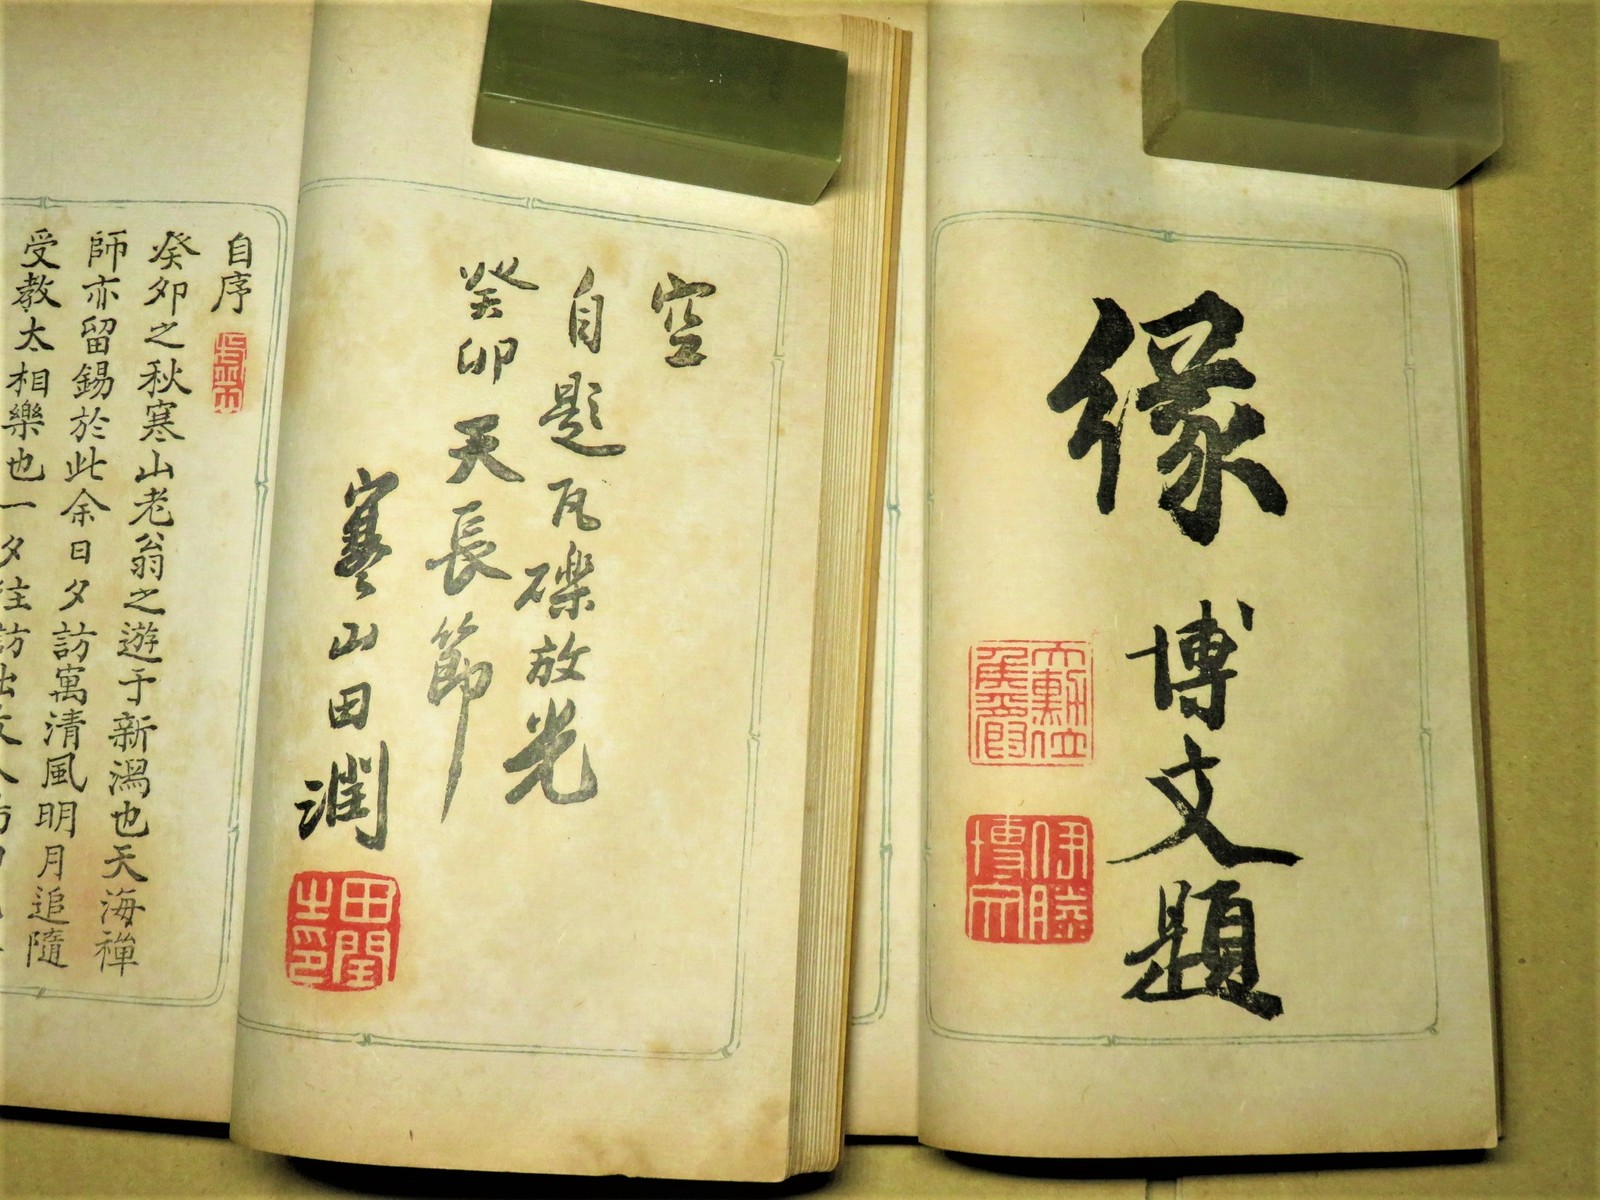 緣
博文題
大勳位
侯爵
伊藤
博文
空
自題瓦礫放光
癸卯天長節
寒山田潤
田閏
之印
自序
癸卯之秋寒山老翁之遊于新潟也天海禪
師亦留錫於此余日夕訪寓清風明月追隨
受教太相樂也一夕往訪